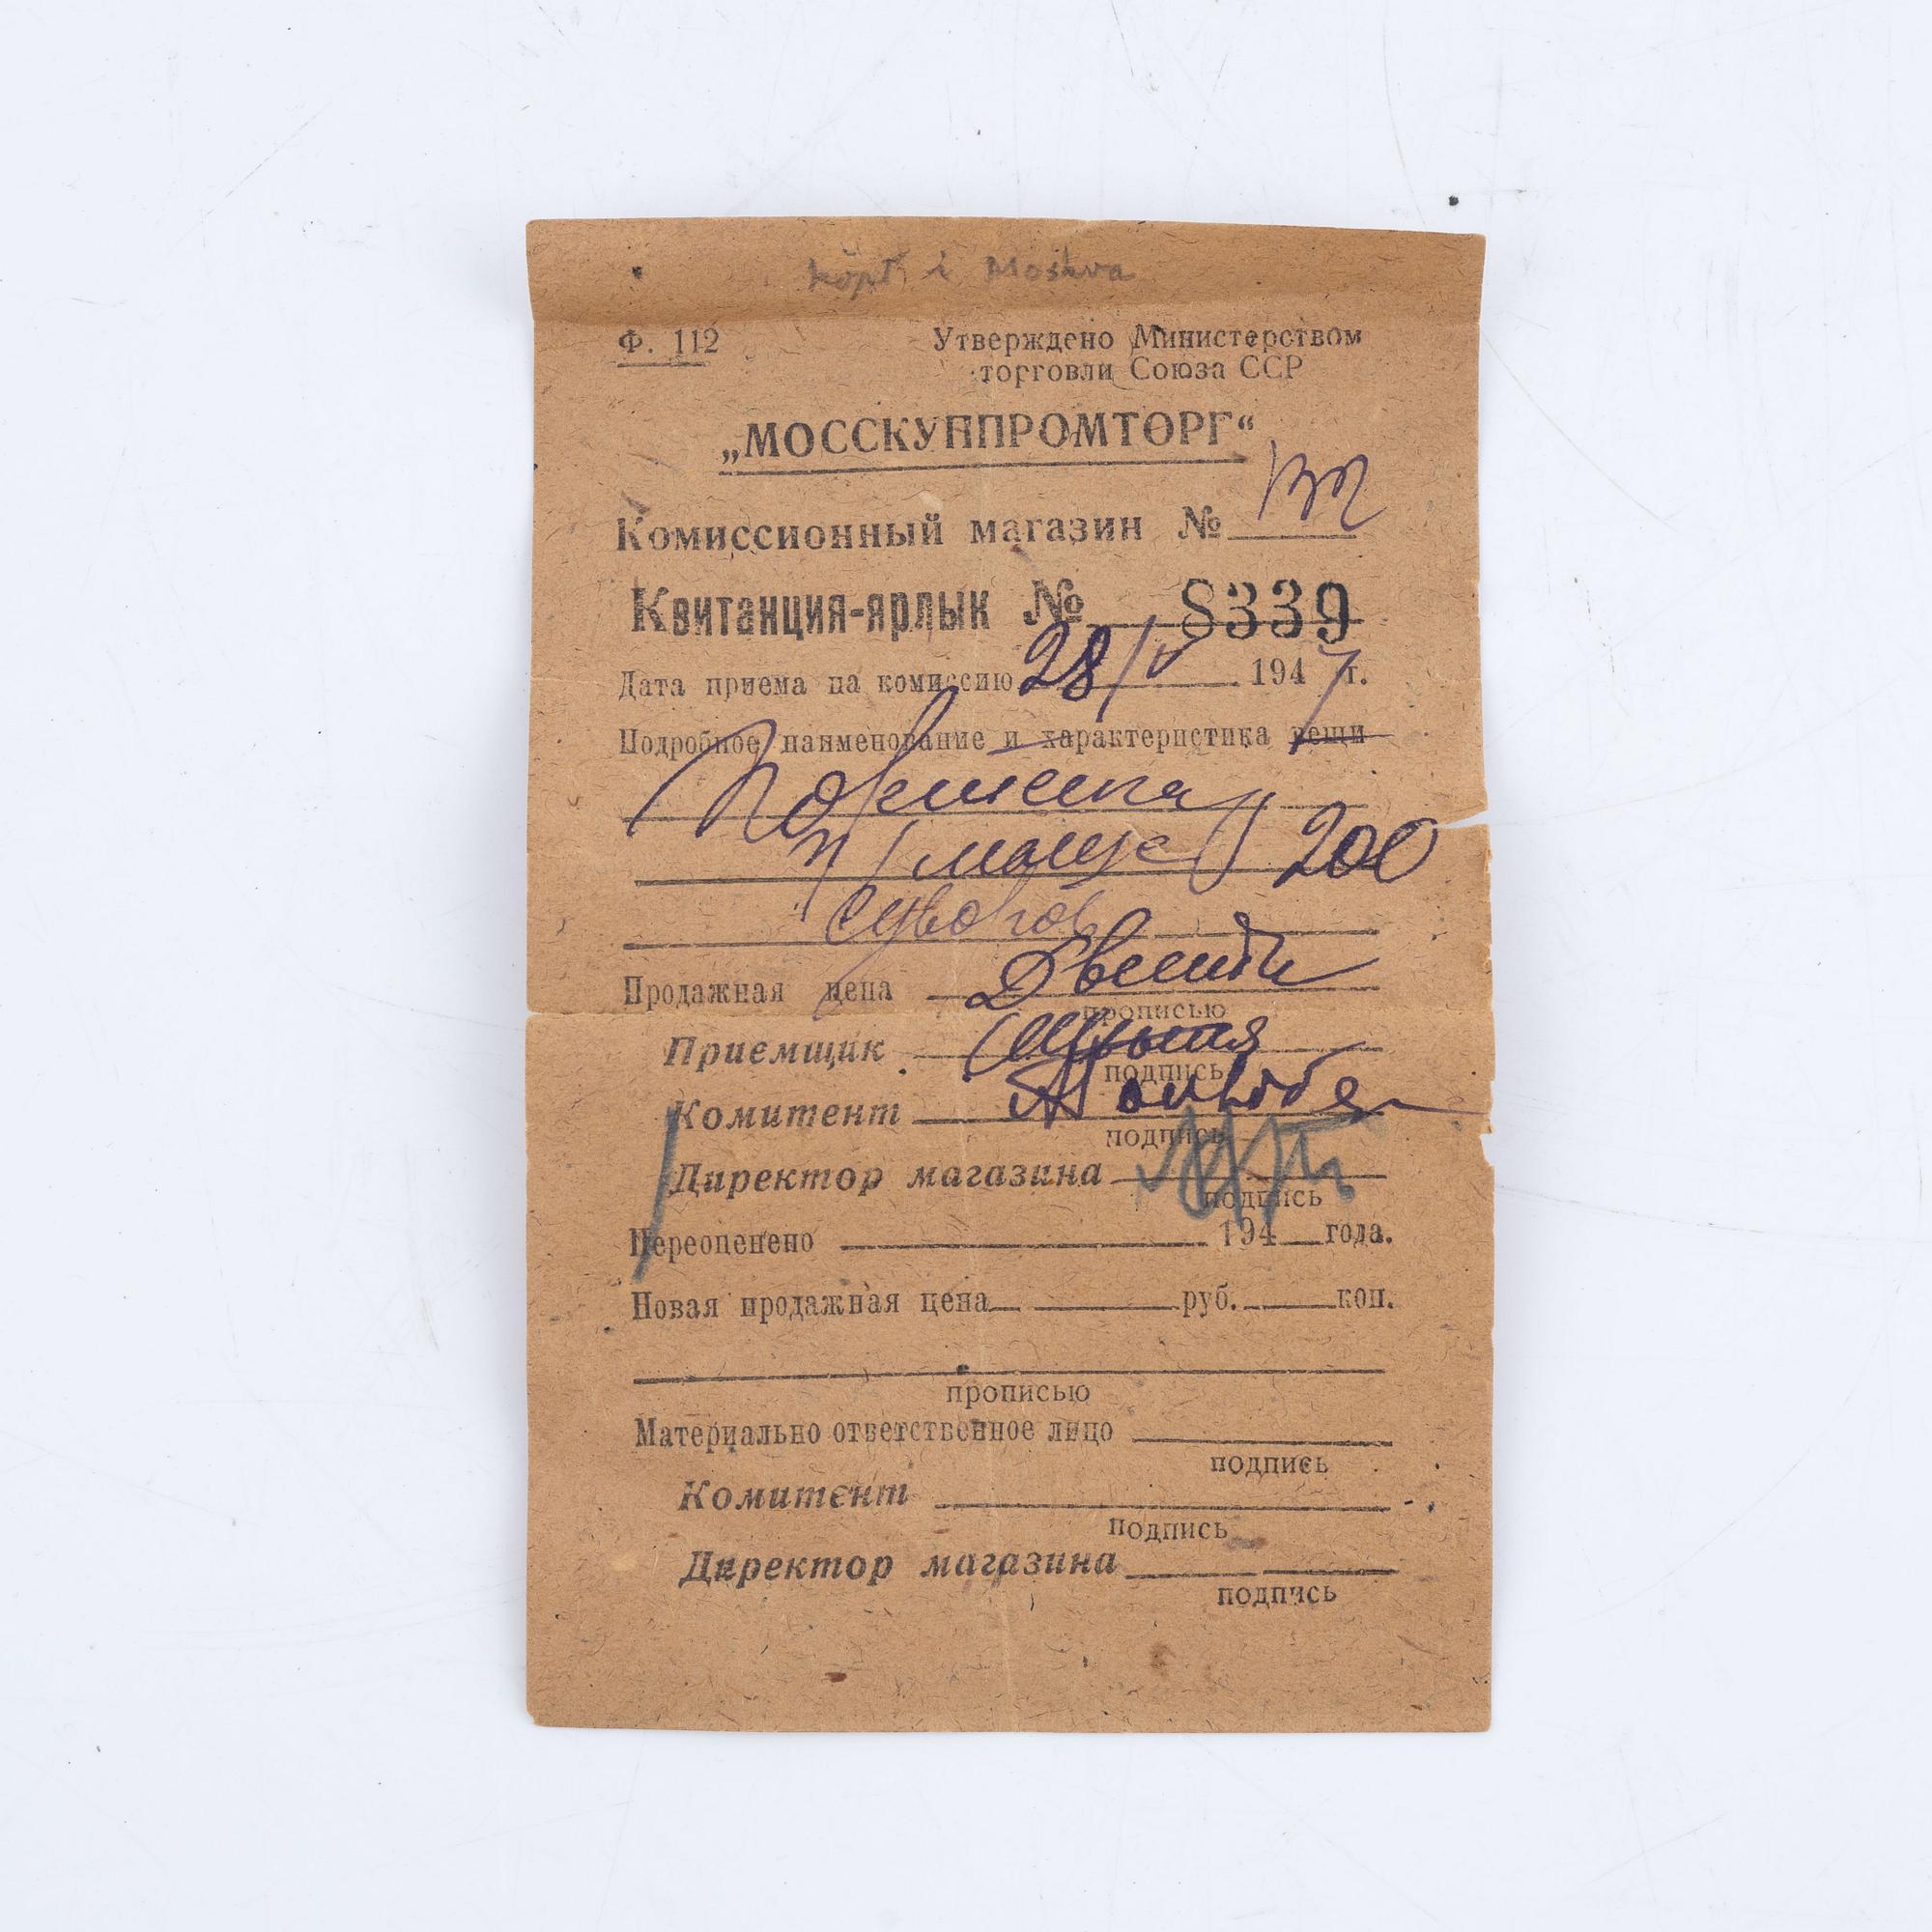 köpt i Moskva
Ф. 112
Утверждено Министерством
торговли Союза ССР
„МОССКУППРОМТОРГ“
Комиссионный магазин №
Квитанция-ярлык № 8339
Дата приема на комиссию 28/V 1947 г.
Подробное наименование и характеристика вещи
200
Продажная цена Двести
прописью
Приемщик
подпись
Комитент
подпись
Директор магазина
подпись
Переоценено 194 года.
Новая продажная цена руб. коп.
прописью
Материально ответственное лицо
подпись
Комитент
подпись
Директор магазина
подпись